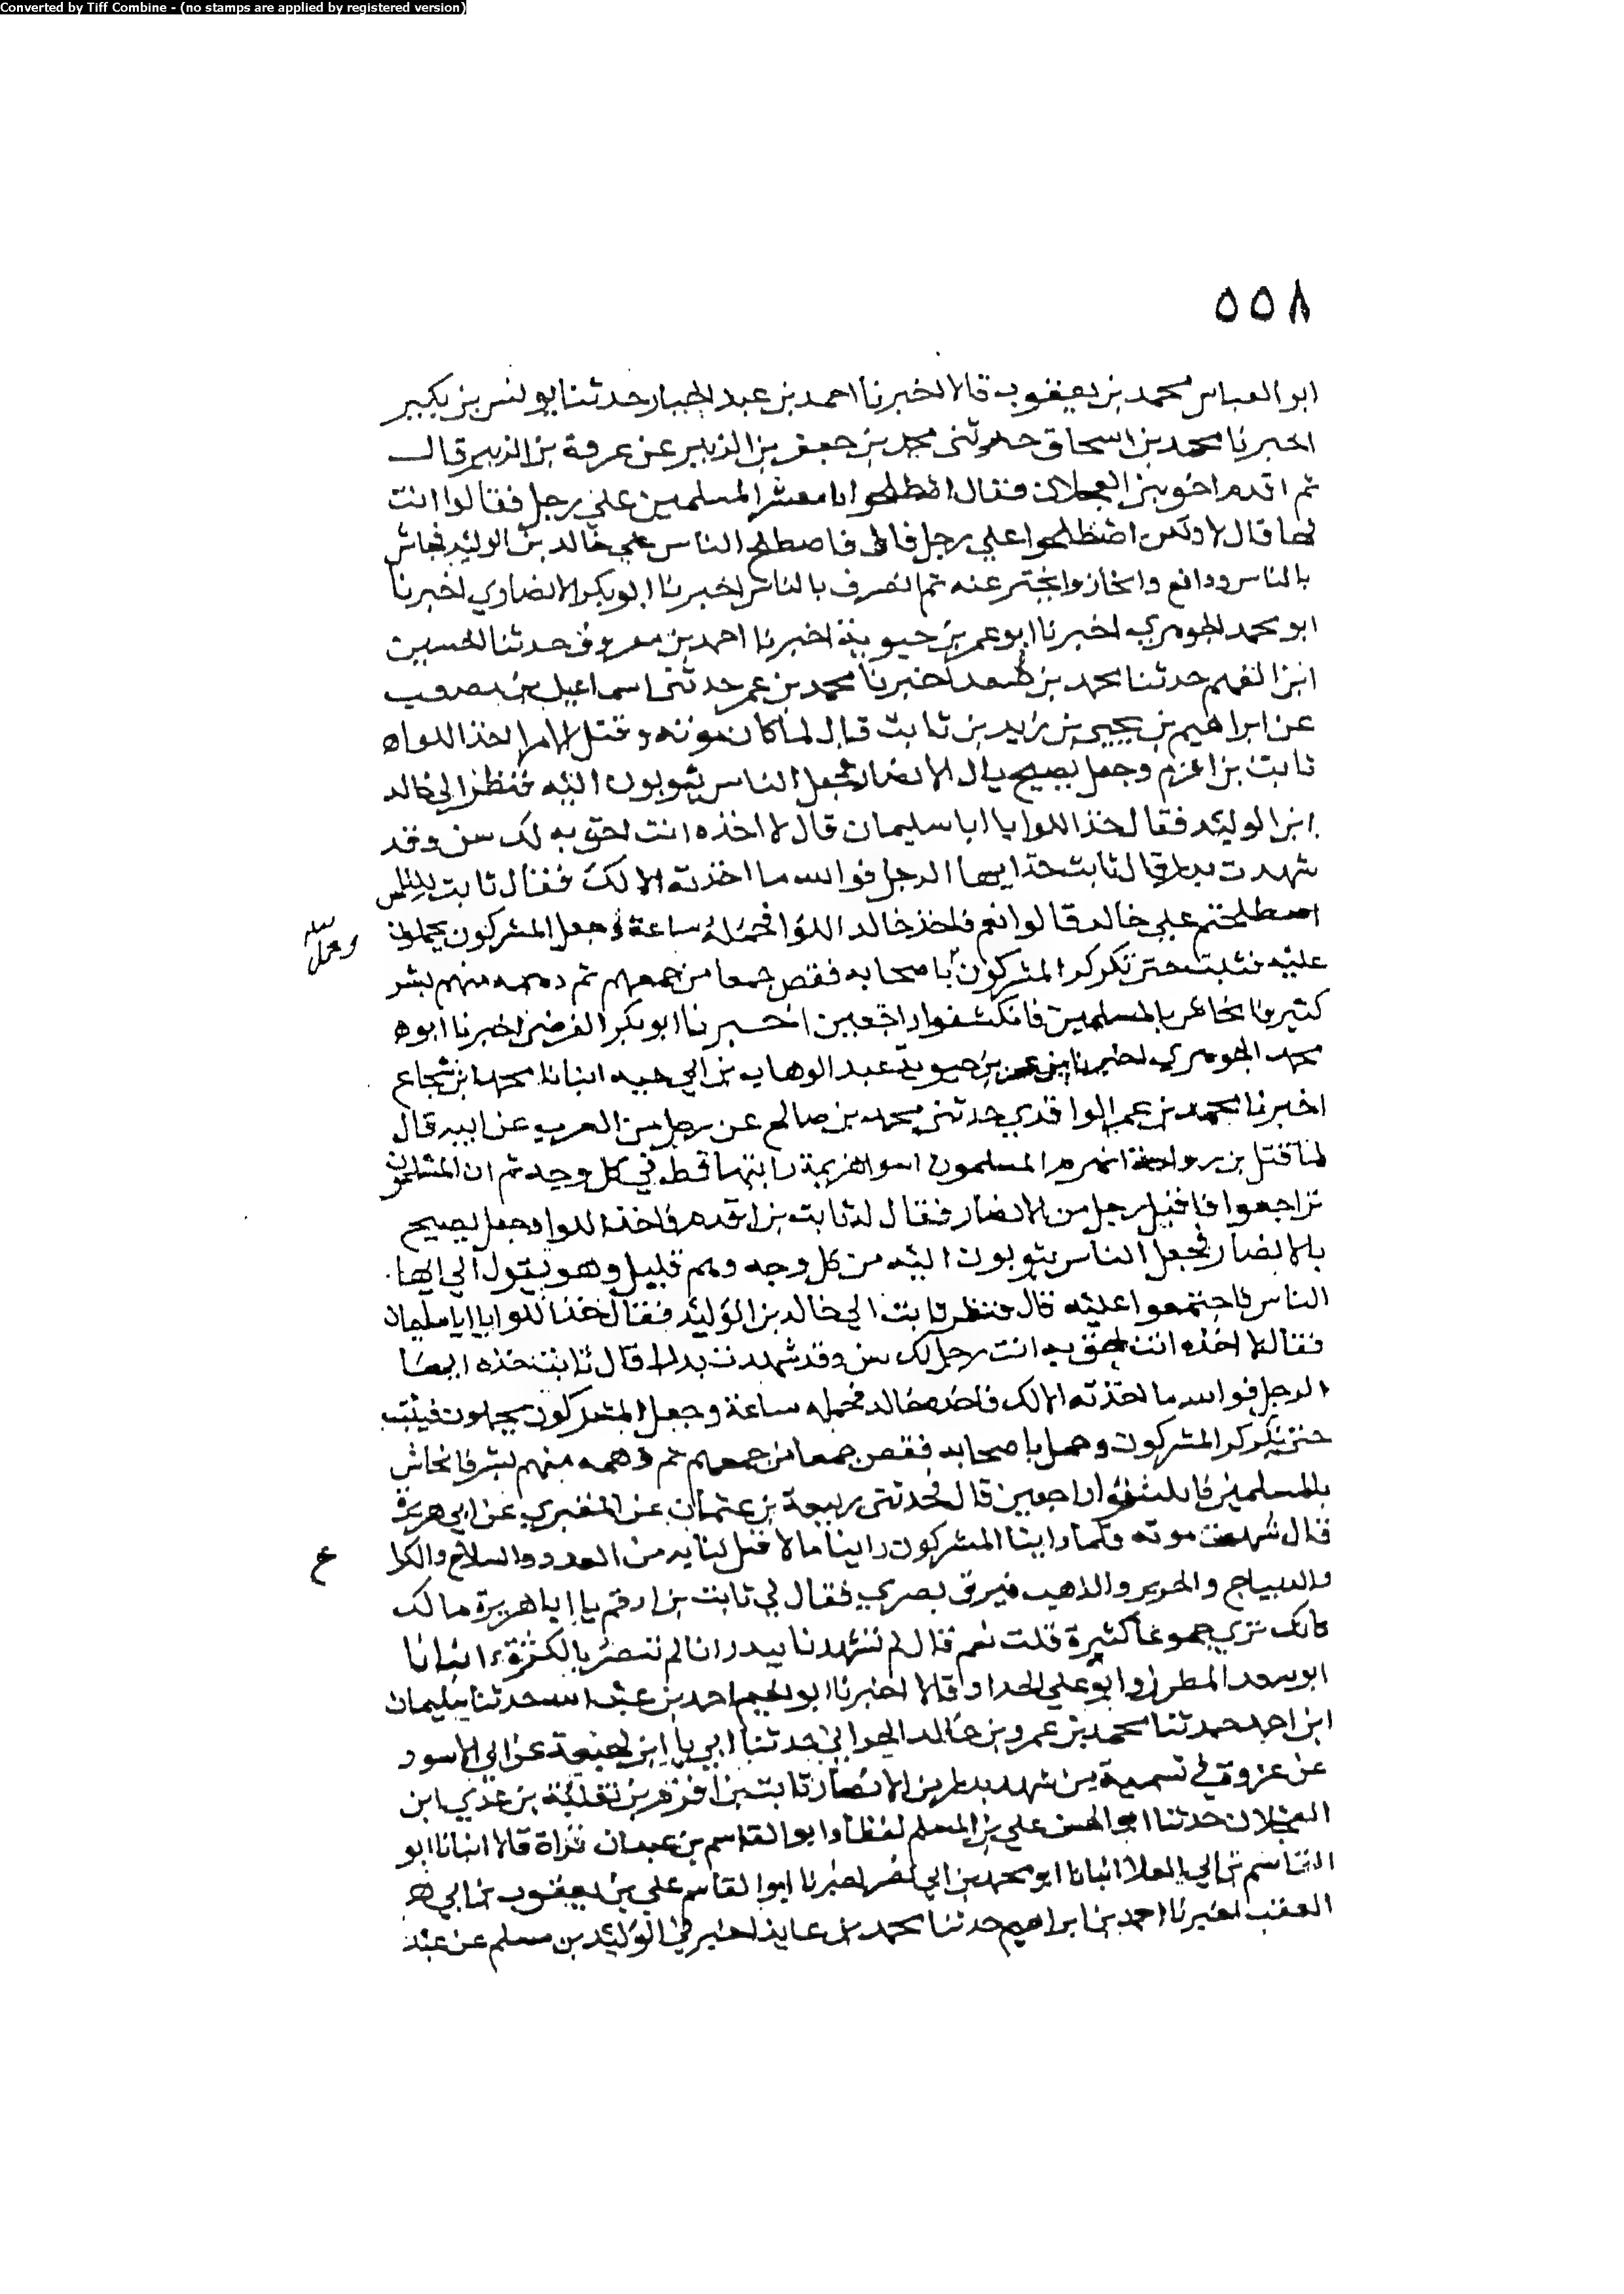 Converted by Tiff Combine - (no stamps are applied by registered version)
٥٥٨
ابو العباس محمد بن يعقوب قالا اخبرنا احمد بن عبد الجبار حدثنا يونس بن بكير
اخبرنا محمد بن اسحاق حدثني محمد بن جعفر بن الزبير عن عروة بن الزبير قال
ثم اخو بني العجلان فقال اصطلحوا يا معشر المسلمين علي رجل فقالوا انت
لها قال لا ولكن اصطلحوا علي رجل فاصطلح الناس علي خالد بن الوليد فجاش
بالناس ودافع وانحاز وانحيز عنه ثم انصرف بالناس اخبرنا ابو بكر الانصاري اخبرنا
ابو محمد الجوهري اخبرنا ابو عمر بن حيوية اخبرنا احمد بن معروف حدثنا الحسين
ابن الفهم حدثنا محمد بن سعد اخبرنا محمد بن عمر حدثني اسماعيل بن مصعب
عن ابراهيم بن يحيي بن زيد بن ثابت قال لما كان موته وقتل الامرا اخذ اللواه
ثابت بن وجعل يصيح يال الانصار فجعل الناس يثوبون اليه فنظر الي خالد
ابن الوليد فقال خذ اللوا يا ابا سليمان قال لا اخذه انت احق به لك سن وقد
شهدت بدرا قال ثابت خذ ايها الرجل فوالله ما اخذته الا لك فقال ثابت للناس
اصطلحتم علي خالد قالوا نعم فاخذ خالد اللوا فحمله ساعة وجعل المشركون يحملون
عليه فثبت حتي تكركر المشركون باصحابه ففض جمعا من جمعهم ثم دهمه منهم بشر
وحمل
كثير فانحاش بالمسلمين فانكشفوا راجعين اخبرنا ابو بكر الفرضي اخبرنا ابوه
محمد الجوهري اخبرنا بن حيوية عبد الوهاب بن ابي حيه انبانا محمد بن شجاع
اخبرنا محمد بن عمر الواقدي حدثني محمد بن صالح عن رجل من العرب عن ابيه قال
لما قتل بن رواحة انهزم المسلمون اسوا هزيمة رايتها قط في كل وجه ثم ان المسلمين
تراجعوا فاقبل رجل من الانصار فقال له ثابت بن اقدم فاخذ اللوا وجعل يصيح
بالانصار فجعل الناس يثوبون اليه من كل وجه وهم قليل وهو يقول الي ايها
الناس فاجتمعوا عليه قال فنظر ثابت الي خالد بن الوليد فقال خذ اللوا يا ابا سليمان
فقال لا اخذه انت احق به انت رجل لك سن وقد شهدت بدرا قال ثابت خذه ايها
الرجل فوالله ما اخذته الا لك فاخذه خالد فحمله ساعة وجعل المشركون يحملون فيثبت
حتي تكركر المشركون وحمل باصحابه ففض جمعا من جمعهم ثم دهمه منهم بشر فانحاش
بالمسلمين فانكشفوا راجعين قال فحدثني ربيعة بن عثمان عن المقبري عن ابي هريرة
قال شهدت موته فلما راينا المشركون راينا ما لا قبل لنا به من العدد والسلاح والكرا
ع
والديباج والحرير والذهب فبرق بصري فقال لي ثابت بن ارقم يا ابا هريرة مالك
كانك تري جموعا كثيرة قلت نعم قال لم تشهدنا ببدر انا لم ننصر بالكثرة انبانا
ابو سعد المطرز وابو علي الحداد قالا اخبرنا ابو نعيم احمد بن عبد الله حدثنا سليمان
ابن احمد حدثنا محمد بن عمرو بن خالد الحراني حدثنا ابي يا ابن لهيعة عن ابي الاسود
عن عروة في تسمية من شهد بدرا من الانصار ثابت بن اقرم بن ثعلبة بن عدي ابن
العجلان حدثنا ابو الحسن علي بن المسلم لفظا وابو القاسم بن عبدان قراة قالا انبانا ابو
القاسم بن ابي العلا انبانا ابو محمد بن ابي نصر اخبرنا ابو القاسم علي بن يعقوب بن ابي
العقب اخبرنا احمد بن ابراهيم حدثنا محمد بن عايذ اخبرني الوليد بن مسلم عن عبد